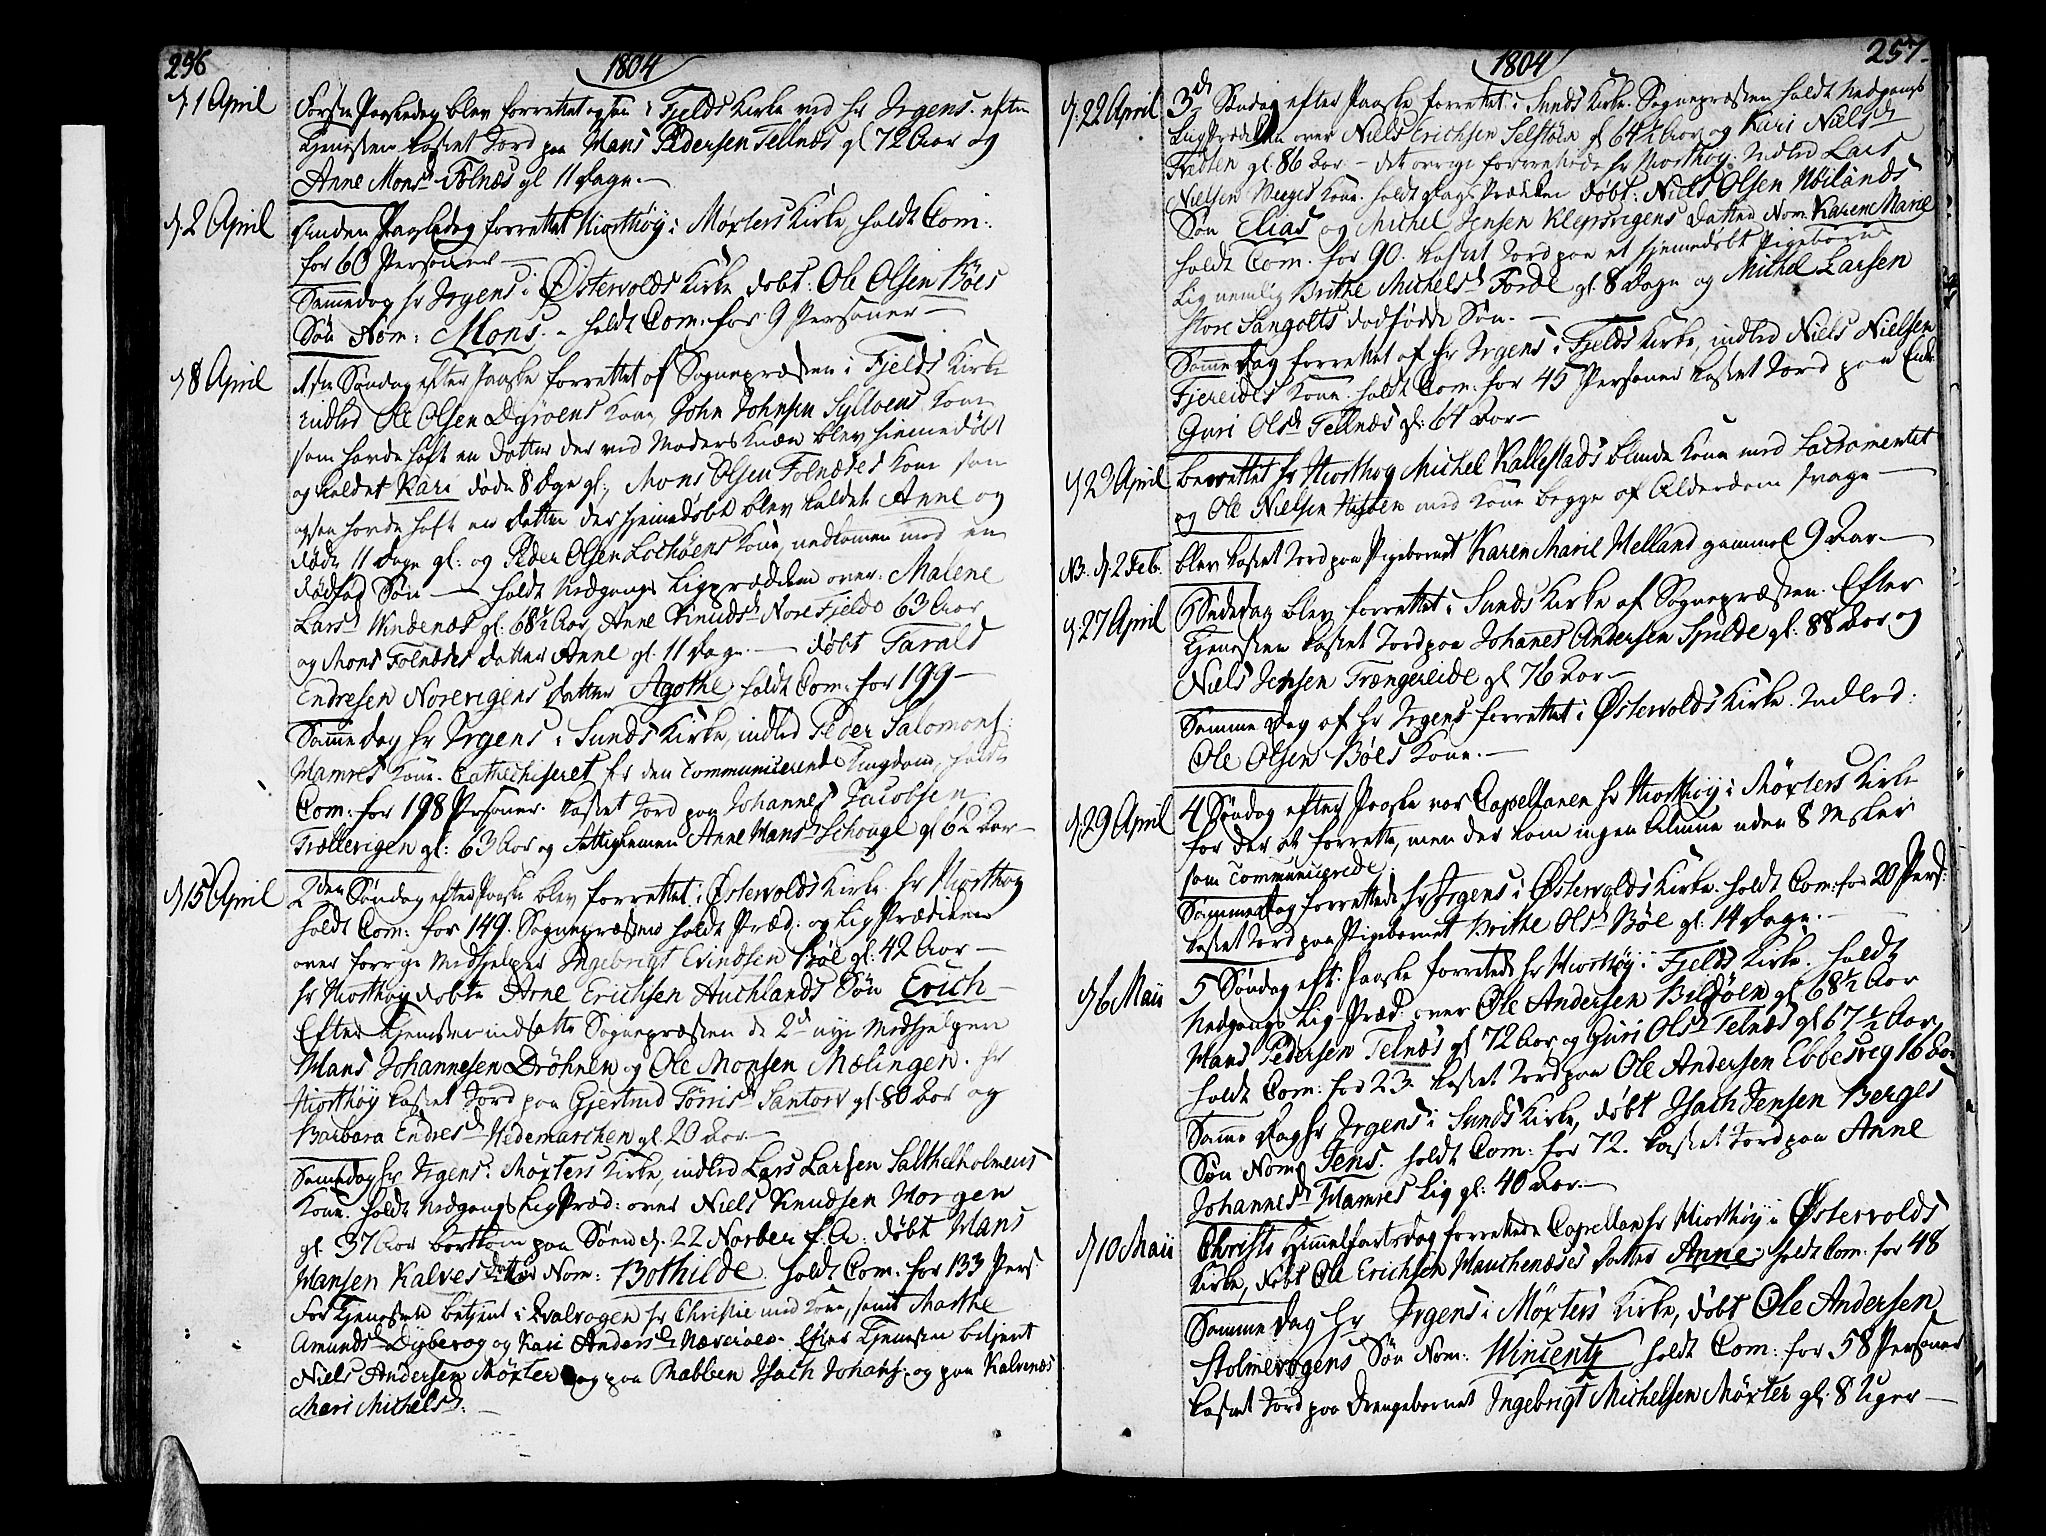 256
1804
d. 1 April
Første Paaskedag blev forrettet ogsaa i Fjelds Kirke ved hr Irgens. efter
Tjenesten kastet Jord paa Mans Pedersen Tellnes gl 72 Aar og
Anne Monsd. Folnæs gl 11 Dage. —
d. 2 April
Anden Paaskedag forrettet Hiorthöy i Möxters Kirke, holdt Com:
for 60 Personer —
Samedag hr Irgens i Østervolds Kirke döbt: Ole Olsen Böes
Sön Nom: Mons. - holdt Com: for 9 Personer —
d. 8 April
1ste Söndag efter Paaske forrettet af Sognepræsten i Fjelds Kirke
indled Ole Olsen Dyröens Kone, John Johnsen Kone
som havde haft en Datter der ved Moders blev hiemmedöbt
og kaldet Kari döde 8 Dage gl:, Mons Olsen Folnæses Kone som
ogsaa havde haft en Datter der hjemedöbt blev kaldet Anne og
döde 11 Dage gl: og Peder Olsen Kone, nedkommen med en
dödfød Sön — holdt Nedgangs Ligprædiken over: Malene
Larsd. Windenæs gl: 68½ Aar, Anne Knudsd. Nore Fjeld 63 Aar
og Mons Folnæses datter Anne gl. 11 Dage. — döbt Tarald
Endresen Norevigens Datter Agothe, holdt Com: for 199 —
Samme dag hr Irgens i Sunds Kirke, indled Peder Salomons:
Mamres Kone. Catechiseret for den Communicerende Ungdom, holdt
Com: for 198 Personer. kastet Jord paa Johannes Jacobsen
Trællevigen gl: 63 Aar og Anne Mansd. Schougl gl 62 Aar —
d. 15 April
2den Söndag efter Paaske blev forrettet i Østervolds Kirke. hr Hiorthöy
holdt Com: for 149. Sognepræsten holdt Præd: og LigPrædiken
over forrige Medhjelper Ingebrigt Evindsen Böe gl: 42 Aar —
hr Hiorthöy döbte Arne Erichsen Auchlands Sön Erich —
Efter Tjenesten indsatte Sognepræsten de 2de nye Medhjelpere
Mans Johannesen Dröhnen og Ole Monsen Mælingen. hr
Hiorthöy kastet Jord paa Gjertrud Tönisd. Santorv gl. 80 Aar og
Barbara Endresd. Hedemarchen gl. 20 Aar. —
Samedag hr Irgens i Möxters Kirke, indled Lars Larsen Salthelholmens
Kone. holdt Nedgangs LigPræd: over Niels Knudsen Morgen
gl. 37 Aar bortkom paa Söen d. 22 Novber f. A: döbt Mans
Mansen Kalves Datter Nom: Bothilde. holdt Com: for 133 Pers
For Tjenesten betjent i hr Christie med Kone, samt Marthe
Amundsd. og Kari Andersd. Efter Tjenesten betjent
Niels Andersen Möxter og paa Rabben Isach Johans: og paa Kalvenæs
Mari Michelsd. —
257.
1804
d. 22 April
3die Söndag efter Paaske forrettet i Sunds Kirke. Sognepræsten holdt Nedgangs
LigPrædiken over Niels Erichsen Selstöen gl 64½ Aar og Kari Nielsd.
gl. 86 Aar. — det övrige forrettede hr Hiorthöy: Indled Lars
Nielsen Kone. holdt Prædiken döbt: Niels Olsen Höilands
Sön Elias og Michel Jensen Klepsvigens Datter Nom: Karen Marie
holdt Com: for 90. kastet Jord paa et hjemedöbt Pigebarns
Lig nemlig Brithe Michelsd. Forde gl. 8 Dage og Michel Larsen
store Sangolts dødfödde Sön. —
Samme Dag forrettet af hr Irgens i Fjelds Kirke, indled Niels Nielsen
Fjereides Kone. holdt Com: for 45 Personer kastet Jord paa Enke
Guri Olsd. Tellnæs gl: 64 Aar —
d. 23 April
berettet hr Hiorthöy Michel Kallestads blinde Kone med Sacramentet
og Ole Nielsen med Kone begge af Alderdom svage —
NB. d. 2 Feb.
blev kastet Jord paa Pigebarnet Karen Marie Helland gammel 9 Aar —
d. 27 April
Bededag blev forrettet i Sunds Kirke af Sognepræsten. Efter
Tjenesten kastet Jord paa Johanes Andersen Spilde gl: 88 Aar og
Niels Jensen Trængereide gl 76 Aar —
Samme Dag af hr Irgens forrettet i Østervolds Kirke. Indled:
Ole Olsen Böes Kone. —
d. 29 April
4 Söndag efter Paaske var Capellanen hr Hiorthöy i Möxters Kirke
for der at forrette, men der kom ingen Almue uden 8 Msker
som Communicerede.
Sammedag forrettede hr Irgens i Østervolds Kirke. holdt Com: for 20 Pers:
kastet Jord paa Pigebarnet Brithe Olsd. Böe gl: 14 Dage. —
d. 6 Maii
5 Söndag eft: Paaske forrettede hr Hiorthöy i Fjelds Kirke. holdt
Nedgangs Lig Præd: over Ole Andersen Bildöen gl 68½ Aar
Mans Pedersen Telnæs gl 72 Aar og Guri Olsd. Telnæs gl 67½ Aar,
holdt Com: for 23. kastet Jord paa Ole Andersen Ebbesvig 16 Aar
Samme Dag hr Irgens i Sunds Kirke, döbt Isach Jensen Berges
Sön Nom: Jens. holdt Com: for 72. kastet Jord paa Anne
Johannesd. Mamres Lig gl: 40 Aar. —
d. 10 Maii
Christi Himmelfartsdag forrettede Capellan hr Hiorthöy i Østervolds
Kirke, döbt Ole Erichsen Hauchenæses Datter Anne. holdt Com: for 48
Samme Dag hr Irgens i Möxters Kirke, döbt Ole Andersen
Stolmevogens Sön Nom: Wincentz holdt Com: for 58 Personer
kastet Jord paa Drengebarnet Ingebrigt Michelsen Möxter gl. 8 Uger —